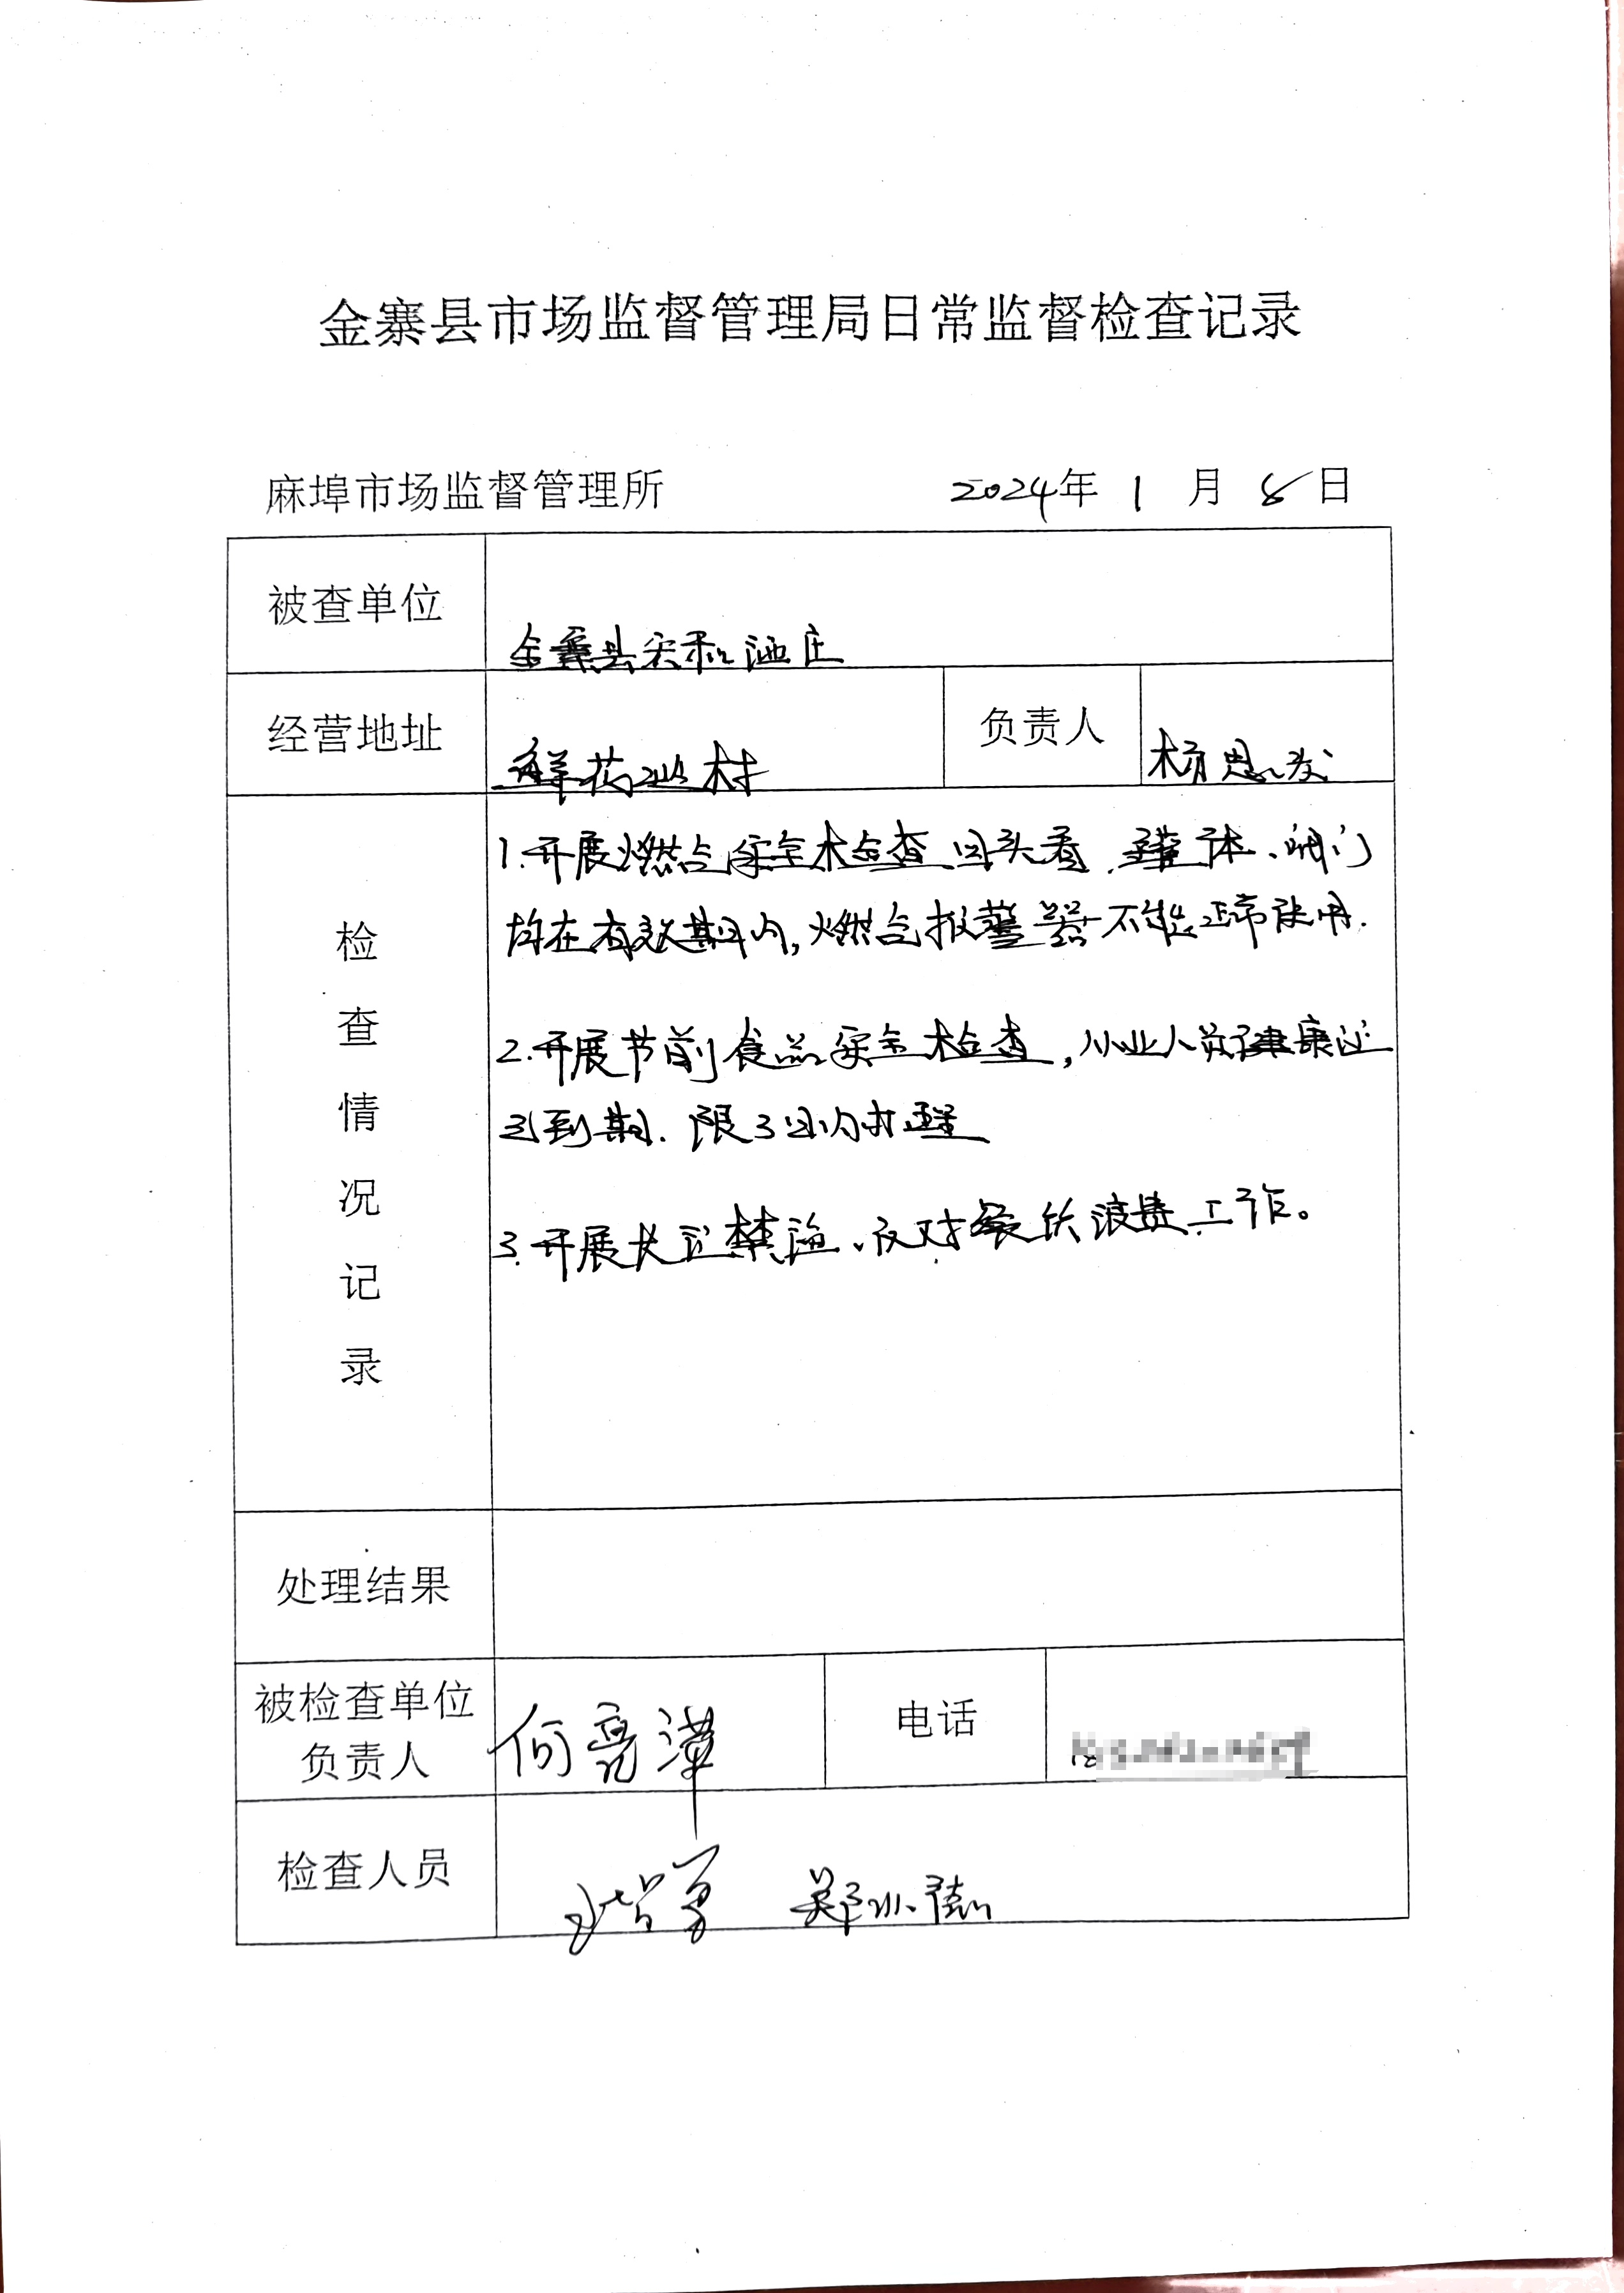 金寨县市场监督管理局日常监督检查记录
麻埠市场监督管理所 2024年 1 月 8 日
被查单位 金寨县天和酒庄
经营地址 鲜花岭村 负责人 杨恩发
检查情况记录
1.开展燃气安全检查回头看,灌体、阀门
均在有效期内,燃气报警器不能正常使用.
2.开展节前食品安全检查,从业人员健康证
已到期.限3日内办理
3.开展长江禁渔、反对餐饮浪费工作。
处理结果
被检查单位
负责人 何亮 电话
检查人员 郑小德